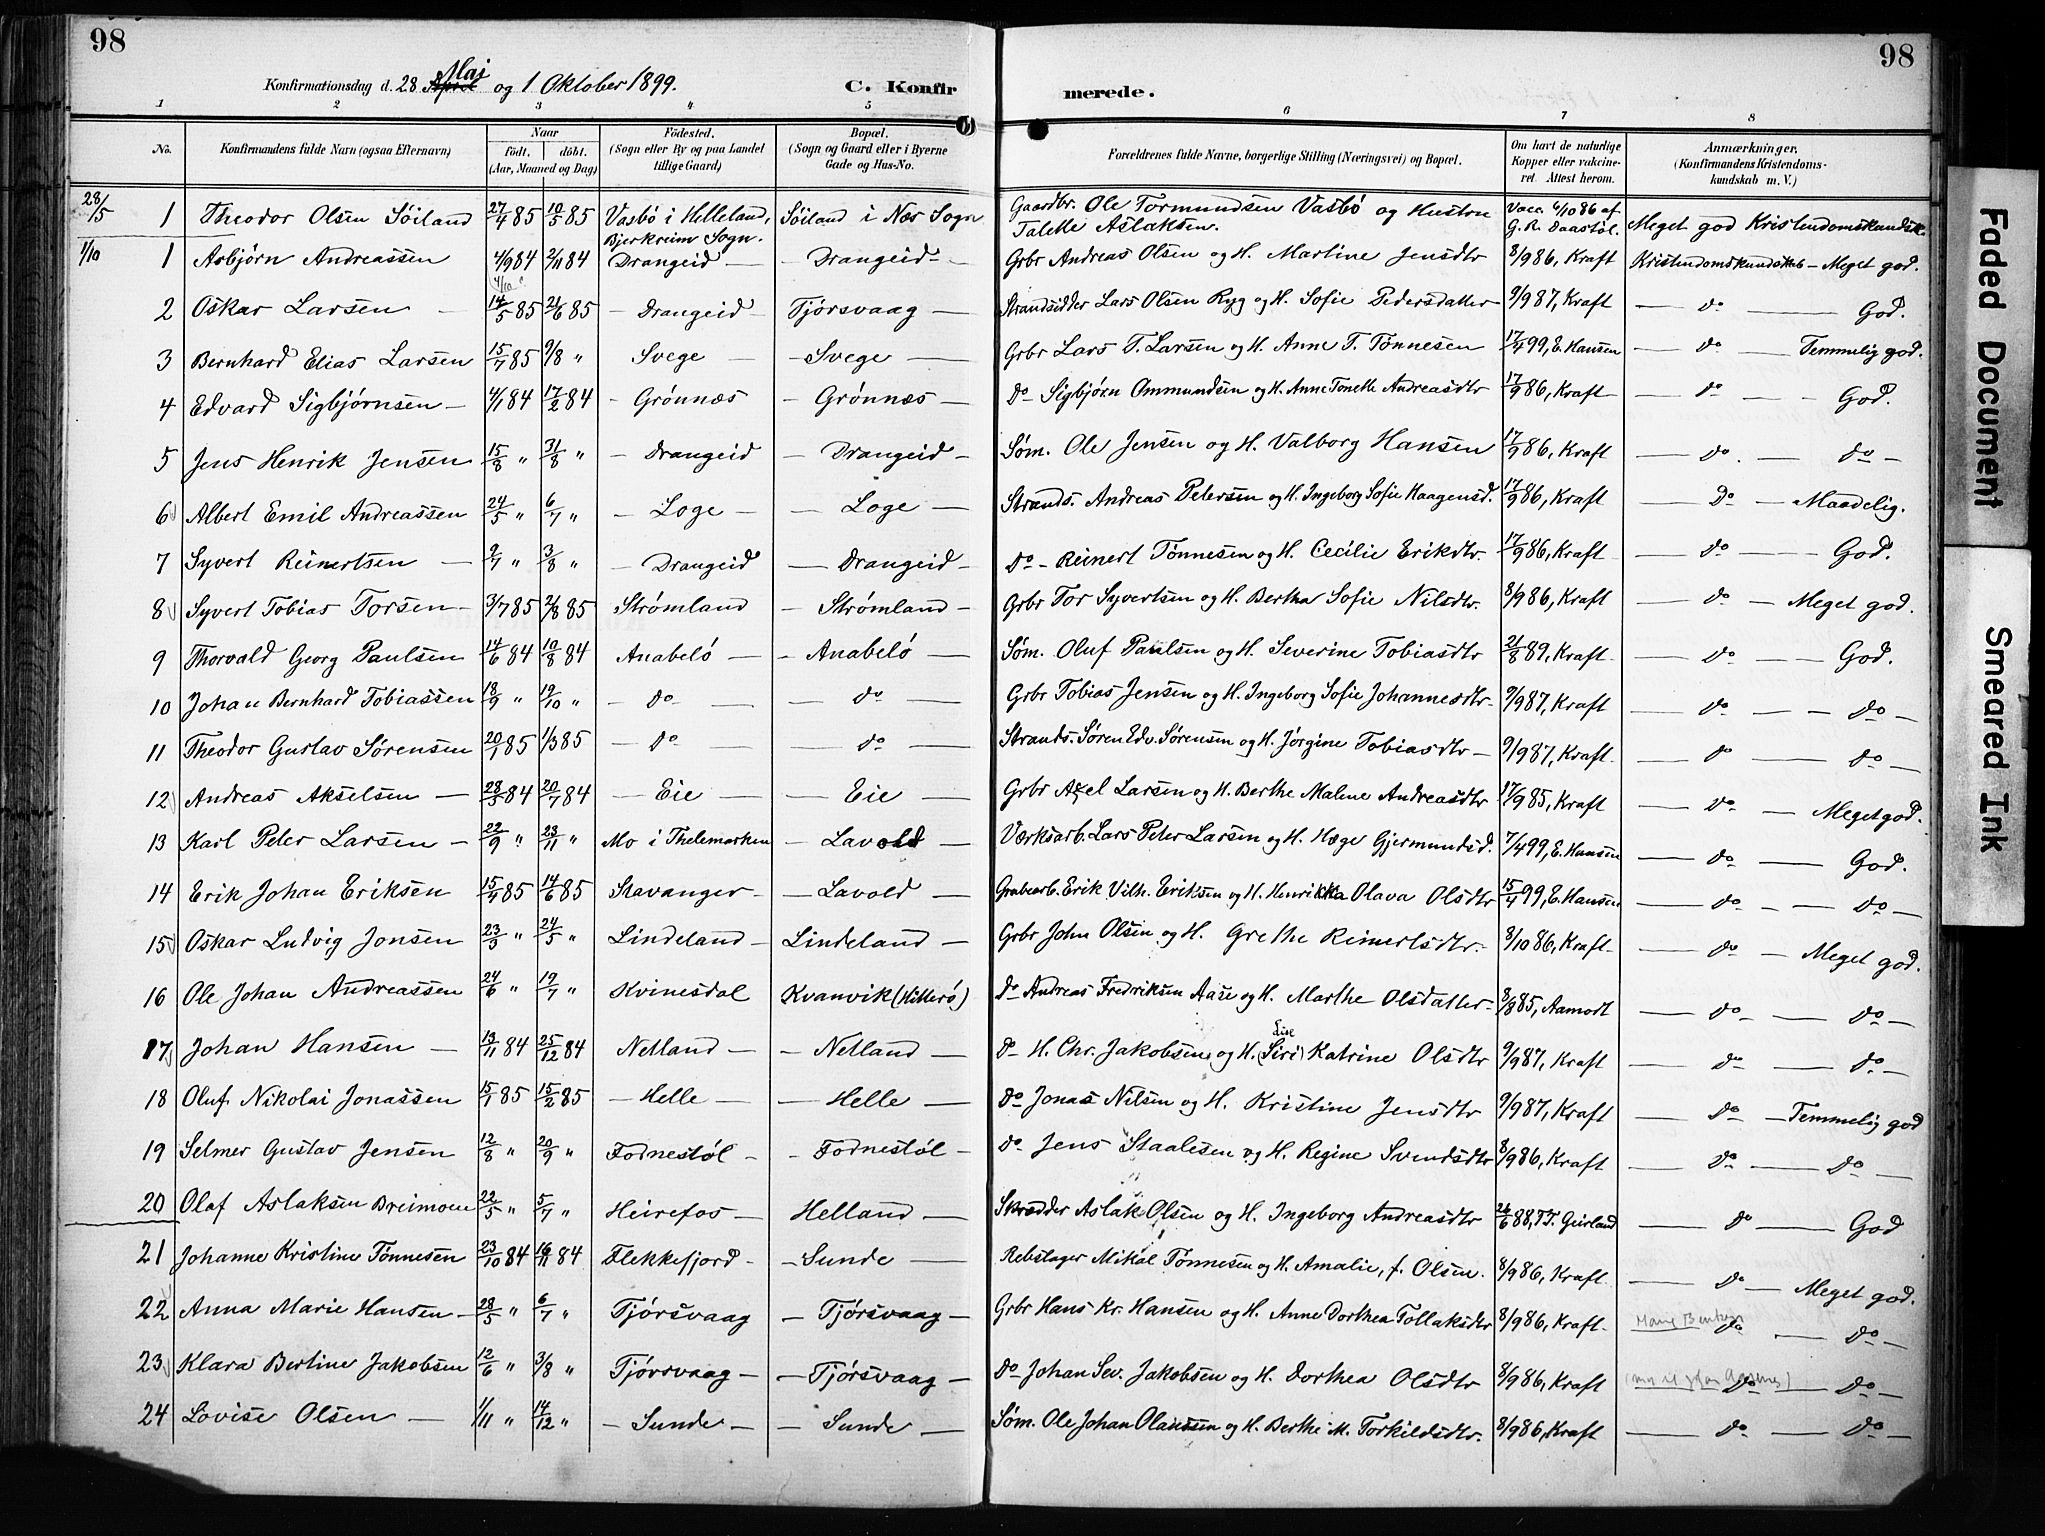 98
98
Konfirmationsdag d. 28 April Mai og 1 Oktober 1899.
C. Konfirmerede.
1 2 3 4 5 6 7 8
No. | Konfirmandens fulde Navn (ogsaa Efternavn) | Naar født. | døbt. (Aar, Maaned og Dag) | Fødested. (Sogn eller By og paa Landet tillige Gaard) | Bopæl. (Sogn og Gaard eller i Byerne Gade og Hus-No. | Forældrenes fulde Navne, borgerlige Stilling (Næringsvei) og Bopæl. | Om havt de naturlige Kopper eller vakcineret. Attest herom. | Anmærkninger. (Konfirmandens Kristendomskundskab m. V.)
28/5 1 Theodor Olsen Søiland 27/4 85 10/5 85 Vasbø i Helleland, Bjerkreim Sogn. Søiland i Nær Sogn Gaardbr. Ole Tormundsen Vasbø og Hustru Taletle Aslaksen. Vacc. 6/10 86 af G. R. Daastøl. Meget god Kristendomskundsk.
1/10 1 Asbjørn Andreassen 4/9 84 4/10 2/11 84 Drangeid — Drangeid — Grbr Andreas Olsen og H. Martine Jensdtr 8/9 86, Kraft Kristendomskundskab – Meget god.
2 Oskar Larsen 14/5 85 21/6 85 – Drangeid – Tjørsvaag — Strandsidder Lars Olsen Ryg og H. Sofie Pedersdatter 9/9 87, Kraft — do — God.
3 Bernhard Elias Larsen 15/7 85 9/8 " – Svege — – Svege — Grbr Lars T. Larsen og H. Anne T. Tønnesen 17/4 99, E. Hansen — do — Temmelig god.
4 Edvard Sigbjørnsen – 4/1 84 17/2 84 – Grønnæs – Grønnæs – Do Sigbjørn Ommundsen og H. Anne Tonette Andreasdtr 17/9 86, Kraft — do — God.
5 Jens Henrik Jensen 15/8 " 31/8 " – Drangeid – Drangeid – Søm. Ole Jensen og H. Valborg Hansen 17/9 86, Kraft — do. — do –
6 Albert Emil Andreassen 24/5 " 6/7 " – Loge – – Loge — Strands. Andreas Petersen og H. Ingeborg Sofie Haagensd. 17/9 86, Kraft — Do – Maadelig.
7 Syvert Reinertsen — 2/7 " 3/8 " – Drangeid — Drangeid – Do – Reinert Tønnesen og H. Cecilie Erikdtr. 17/9 86, Kraft — do — God.
8 Syvert Tobias Torsen – 3/7 85 2/8 85 – Strømland – Strømland – Grbr Tor Syvertsen og H. Bertha Sofie Nilsdtr. 8/9 86, Kraft — do – Meget god.
9 Thorvald Georg Paulsen 14/6 84 10/8 84 Anabelø – – Anabelø — Søm. Oluf Paulsen og H. Severine Tobiasdtr 2/8 89, Kraft. — do — God.
10 Johan Bernhard Tobiassen 18/9 " 19/10 " – do – — do — Grbr Tobias Jensen og H. Ingeborg Sofie Johannesdtr. 9/9 87, Kraft — do — – do –
11 Theodor Gustav Sørensen 20/1 85 1/3 85 – do – — do — Strands. Søren Edv. Sørensen og H. Jørgine Tobiasdtr – 9/9 87, Kraft. — do — do –
12 Andreas Akselsen — 28/5 84 20/7 84 — Eie — — Eie — Grbr Axel Larsen og H. Berthe Malene Andreasdtr 17/9 85, Kraft — do — Meget god.
13 Karl Peter Larsen – 22/9 " 23/11 " Mo i Thelemarken – Lavold – Værksarb. Lars Peter Larsen og H. Hæge Gjermundsd. 7/4 99, E. Hansen — do — God.
14 Erik Johan Eriksen 15/4 85 14/6 85 – Stavanger – – Lavold – Grubearb. Erik Vilh. Eriksen og H. Henrikka Olava Olsdtr 15/4 99, E. Hansen — do – – do –
15 Oskar Ludvig Jonsen 23/3 " 24/5 " – Lindeland – Lindeland – Grbr John Olsen og H. Grethe Reinertsdtr. 8/10 86, Kraft – — do – Meget god.
16 Ole Johan Andreassen 24/6 " 19/7 " Kvinesdal Kvanvik (Hitterø) Do Andreas Fredriksen Aase og H. Marthe Olsdatter 8/8 85, Aamodt — do – — do –
17 Johan Hansen – 13/11 84 25/12 84 – Netland – – Netland – Do H. Chr. Jakobsen og H. (Siri) Lise Katrine Olsdtr 9/9 87, Kraft — do — do –
18 Oluf Nikolai Jonassen 15/1 85 15/2 85 – Helle — – Helle — Do Jonas Nilsen og H. Kristine Jensdtr 9/9 87, Kraft — do – Temmelig god
19 Selmer Gustav Jensen 12/8 " 20/9 " Fodnestøl – – Fodnestøl – Do Jens Staalesen og H. Regine Svendsdtr 8/9 86, Kraft — do — do –
20 Olaf Aslaksen Breimoen 22/5 " 5/7 " – Heirefos – Helland — Skrædder Aslak Olsen og H. Ingeborg Andreasdtr 26/6 88, T.T. Geirland — do — God
21 Johanne Kristine Tønnesen 23/10 84 16/11 84 Flekkefjord – – Sunde — Rebslager Mikal Tønnesen og H. Amalie, f. Olsen. 8/9 86, Kraft — do – Meget god.
22 Anna Marie Hansen – 28/5 " 6/7 " Tjørsvaag – Tjørsvaag – Grbr Hans Kr. Hansen og H. Anne Dorthea Tollaksdtr 8/9 86, Kraft. – do — do –
23 Klara Bertine Jakobsen 12/6 " 3/8 " Tjørsvaag – – Tjørsvaag – Do Johan Sev. Jakobsen og H. Dorthea Olsdtr 8/9 86, Kraft – do – do –
24 Lovise Olsen — 1/11 " 14/12 " – Sunde – – Sunde – Søm. Ole Johan Olaussen og H. Berthe M. Torkildsdtr. 8/9 86, Kraft — do — do –
Faded Document
Smeared Ink